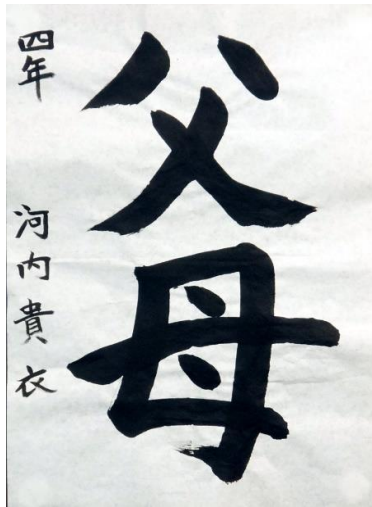 父母
四年 河内貴衣